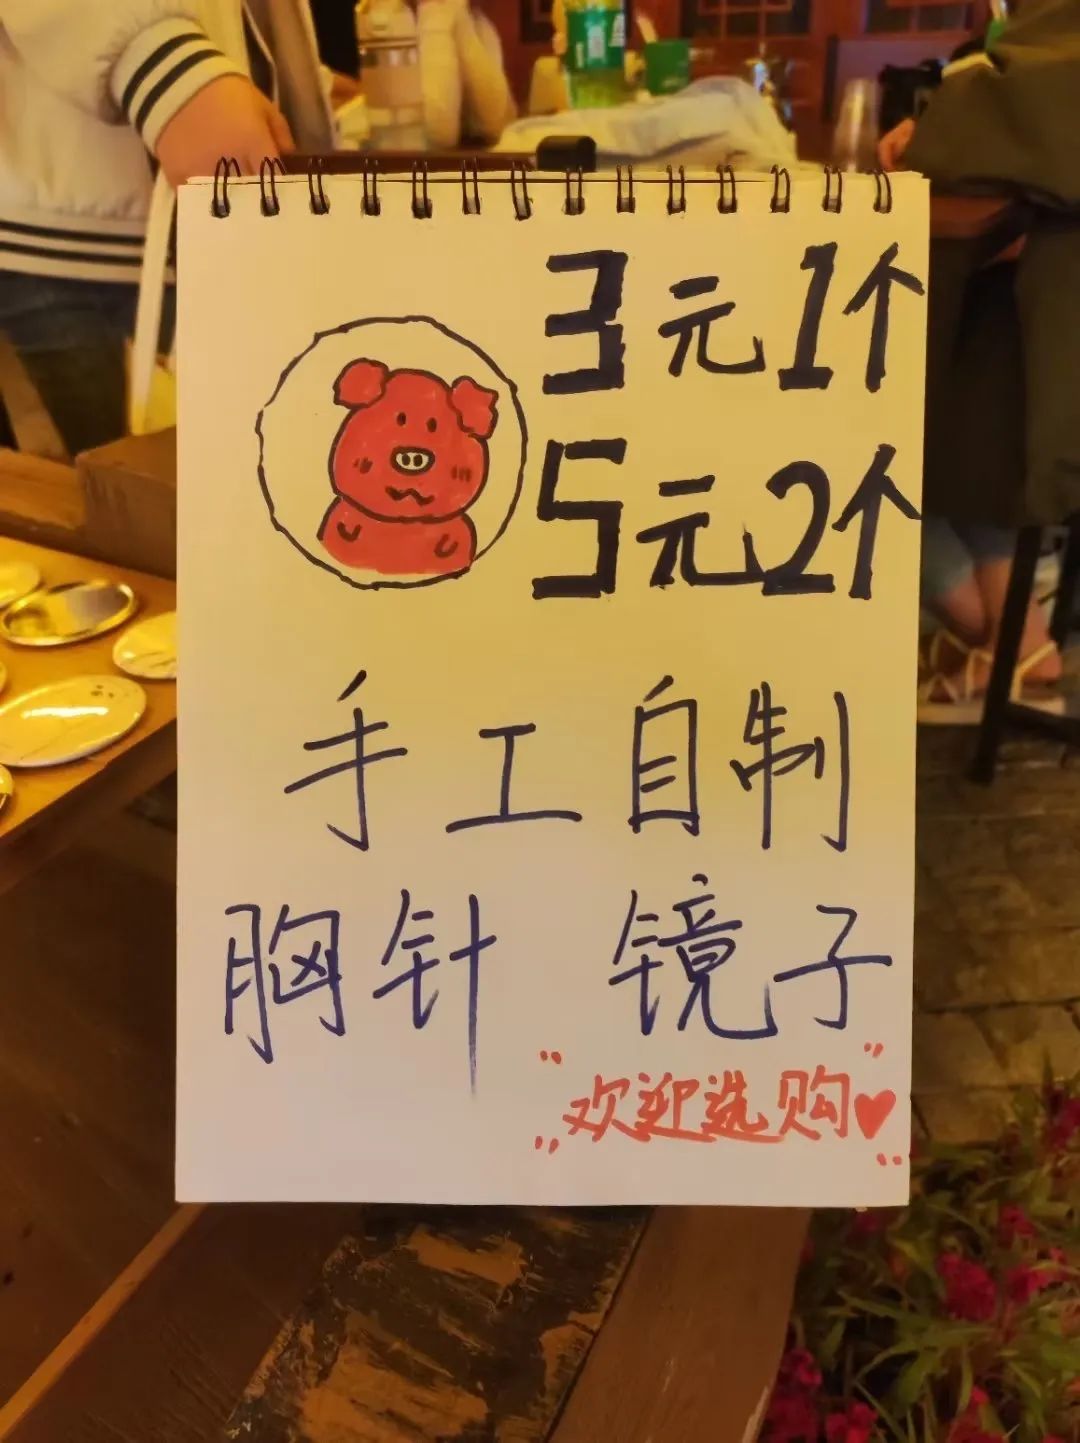 3元1个
5元2个
手工自制
胸针 镜子
欢迎选购